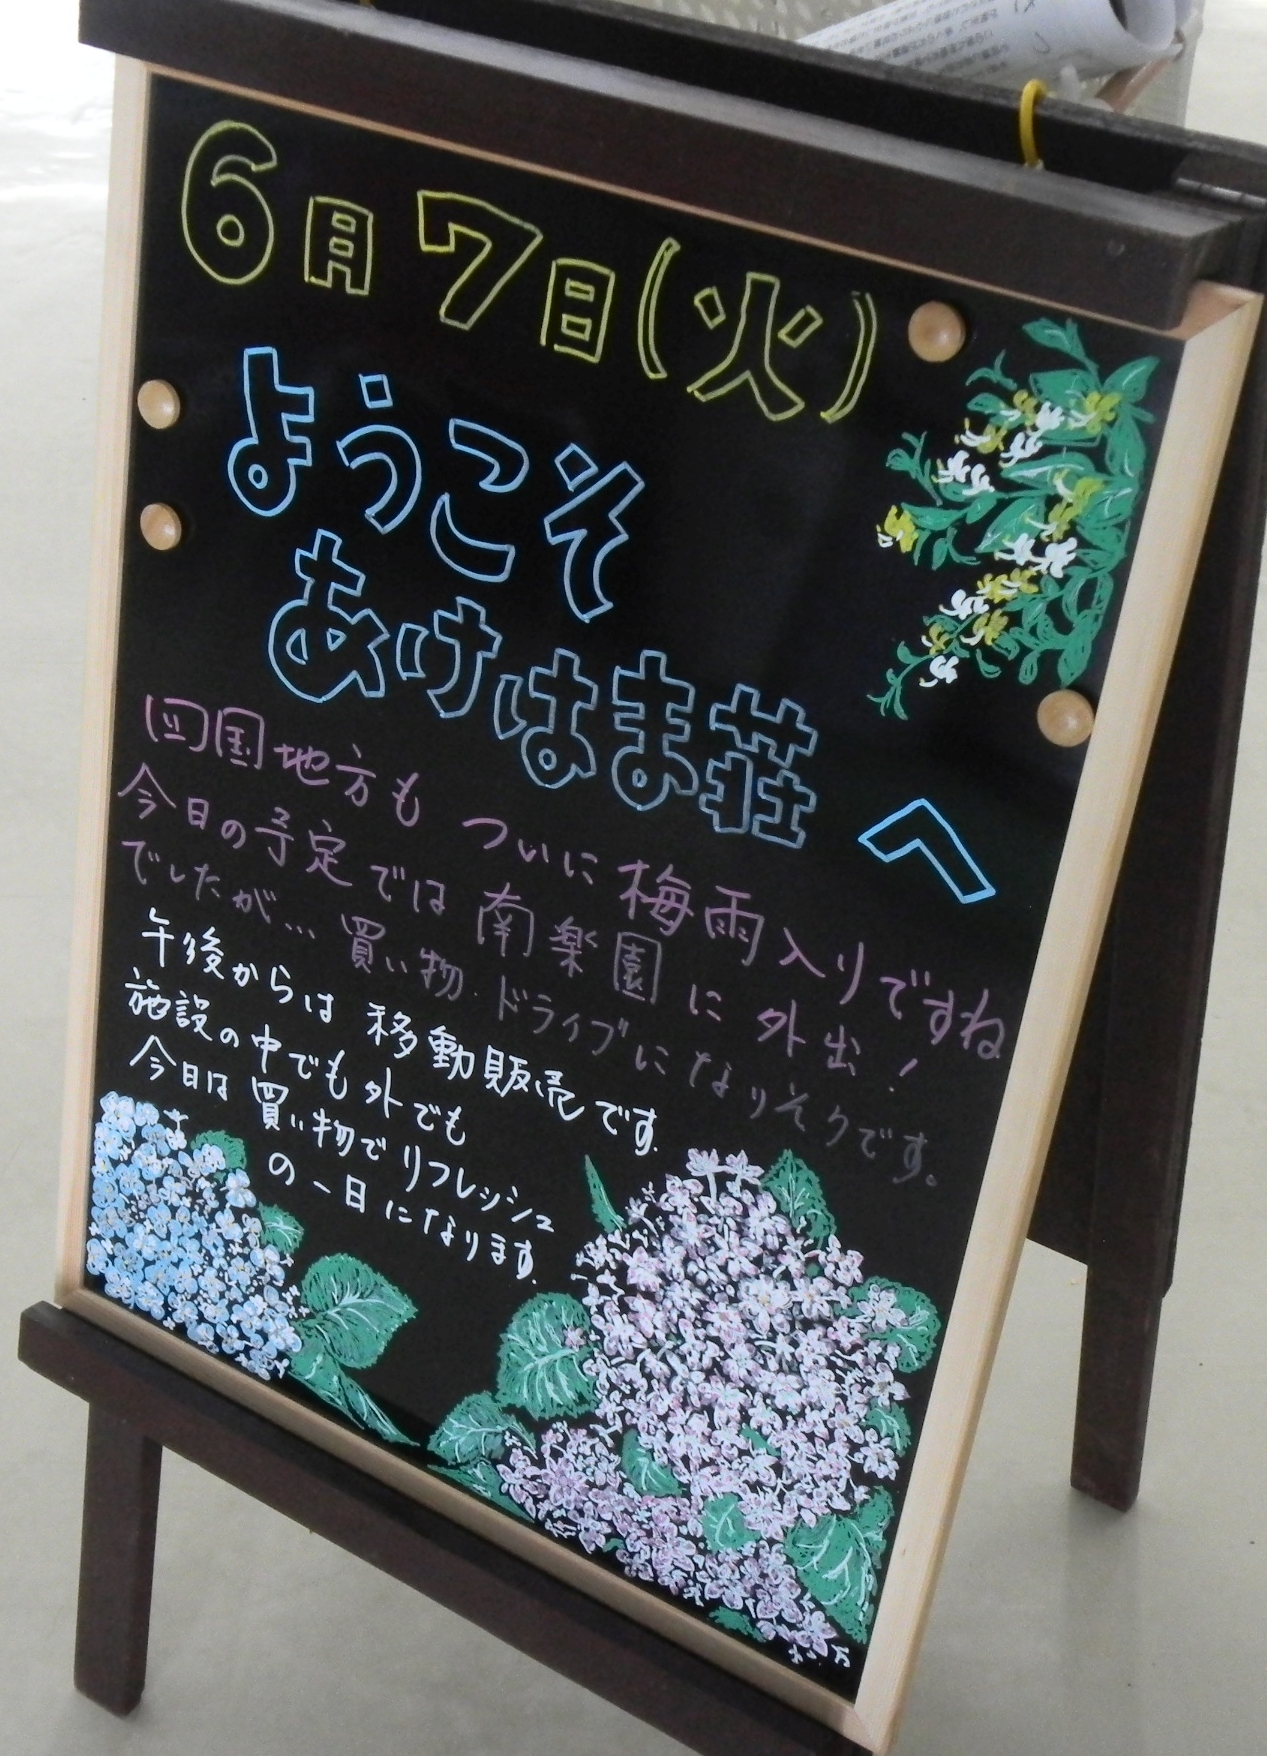 6月7日(火)
ようこそ
あけはま荘へ
四国地方も ついに梅雨入りですね
今日の予定では 南楽園に 外出!
でしたが… 買い物ドライブになりそうです。
午後からは 移動販売です。
施設の中でも外でも
今日は 買い物でリフレッシュ
の一日になります。